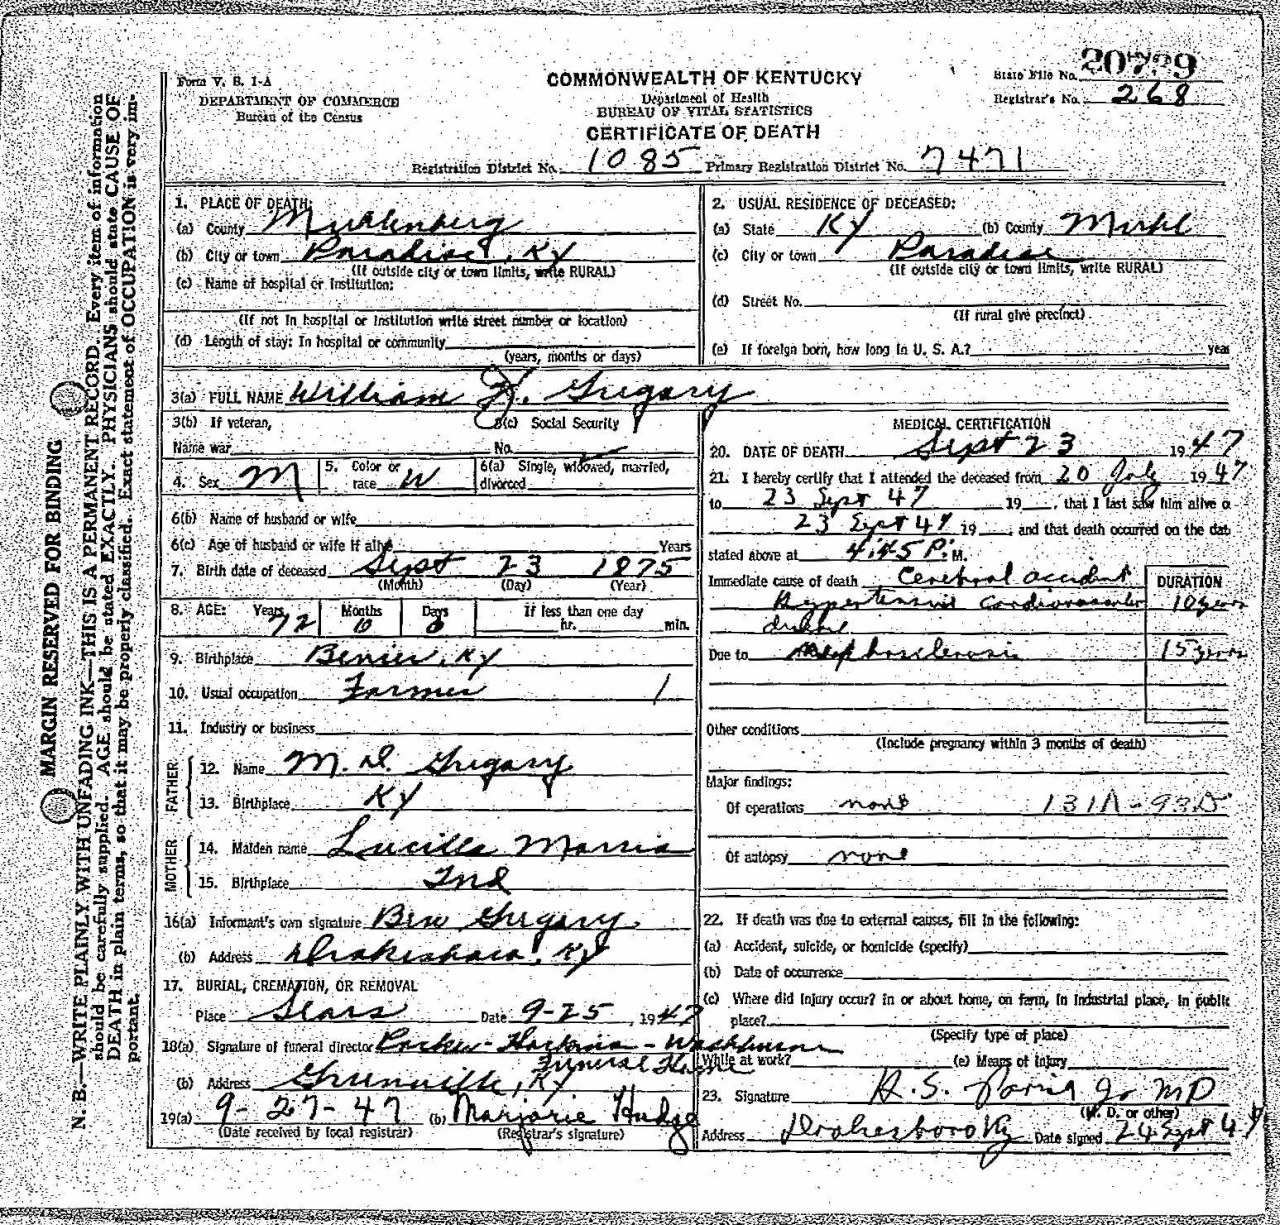 Form V. S. 1-A
DEPARTMENT OF COMMERCE
Bureau of the Census
COMMONWEALTH OF KENTUCKY
Department of Health
BUREAU OF VITAL STATISTICS
CERTIFICATE OF DEATH
State File No.
Registrar's No. 268
Registration District No. 1085 Primary Registration District No. 7471
MARGIN RESERVED FOR BINDING
N. B.—WRITE PLAINLY, WITH UNFADING INK—THIS IS A PERMANENT RECORD. Every item of information
should be carefully supplied. AGE should be stated EXACTLY. PHYSICIANS should state CAUSE OF
DEATH in plain terms, so that it may be properly classified. Exact statement of OCCUPATION is very im-
portant.
1. PLACE OF DEATH:
(a) County Muhlenberg
(b) City or town Paradise, Ky
(If outside city or town limits, write RURAL)
(c) Name of hospital or institution:
(If not in hospital or institution write street number or location)
(d) Length of stay: In hospital or community
(years, months or days)
2. USUAL RESIDENCE OF DECEASED:
(a) State Ky (b) County Muhl
(c) City or town Paradise
(If outside city or town limits, write RURAL)
(d) Street No.
(If rural give precinct)
(e) If foreign born, how long in U. S. A.? year
3(a) FULL NAME William Gregary
3(b) If veteran,
Name war
3(c) Social Security
No.
4. Sex M
5. Color or
race W
6(a) Single, widowed, married,
divorced
6(b) Name of husband or wife
6(c) Age of husband or wife if alive Years
7. Birth date of deceased Sept 23 1875
(Month) (Day) (Year)
8. AGE: Years 72 Months Days If less than one day
hr. min.
9. Birthplace Ky
10. Usual occupation Farmer 1
11. Industry or business
FATHER
12. Name Gregary
13. Birthplace Ky
MOTHER
14. Maiden name Lucille
15. Birthplace Ind
16(a) Informant's own signature Ben Gregary
(b) Address Ky
17. BURIAL, CREMATION, OR REMOVAL
Place Sears Date 9-25, 1947
18(a) Signature of funeral director Washburn
Funeral Home
(b) Address Greenville, Ky
19(a) 9-27-47 (b) Marjorie
(Date received by local registrar) (Registrar's signature)
MEDICAL CERTIFICATION
20. DATE OF DEATH Sept 23 1947
21. I hereby certify that I attended the deceased from 20 July 1947
to 23 Sept 47 19 , that I last saw him alive o
23 Sept 47 19 , and that death occurred on the dat
stated above at 4:45 P. M.
Immediate cause of death Cerebral accident DURATION
Hypertensive Cardiovascular 10 years
Due to 15 years
Other conditions
(Include pregnancy within 3 months of death)
Major findings:
Of operations none 131A-93D
Of autopsy none
22. If death was due to external causes, fill in the following:
(a) Accident, suicide, or homicide (specify)
(b) Date of occurrence
(c) Where did injury occur? in or about home, on farm, in industrial place, in public
place?
(Specify type of place)
While at work? (e) Means of injury
23. Signature Jr MD
(M. D. or other)
Address Drakesboro Ky Date signed 24 Sept 47